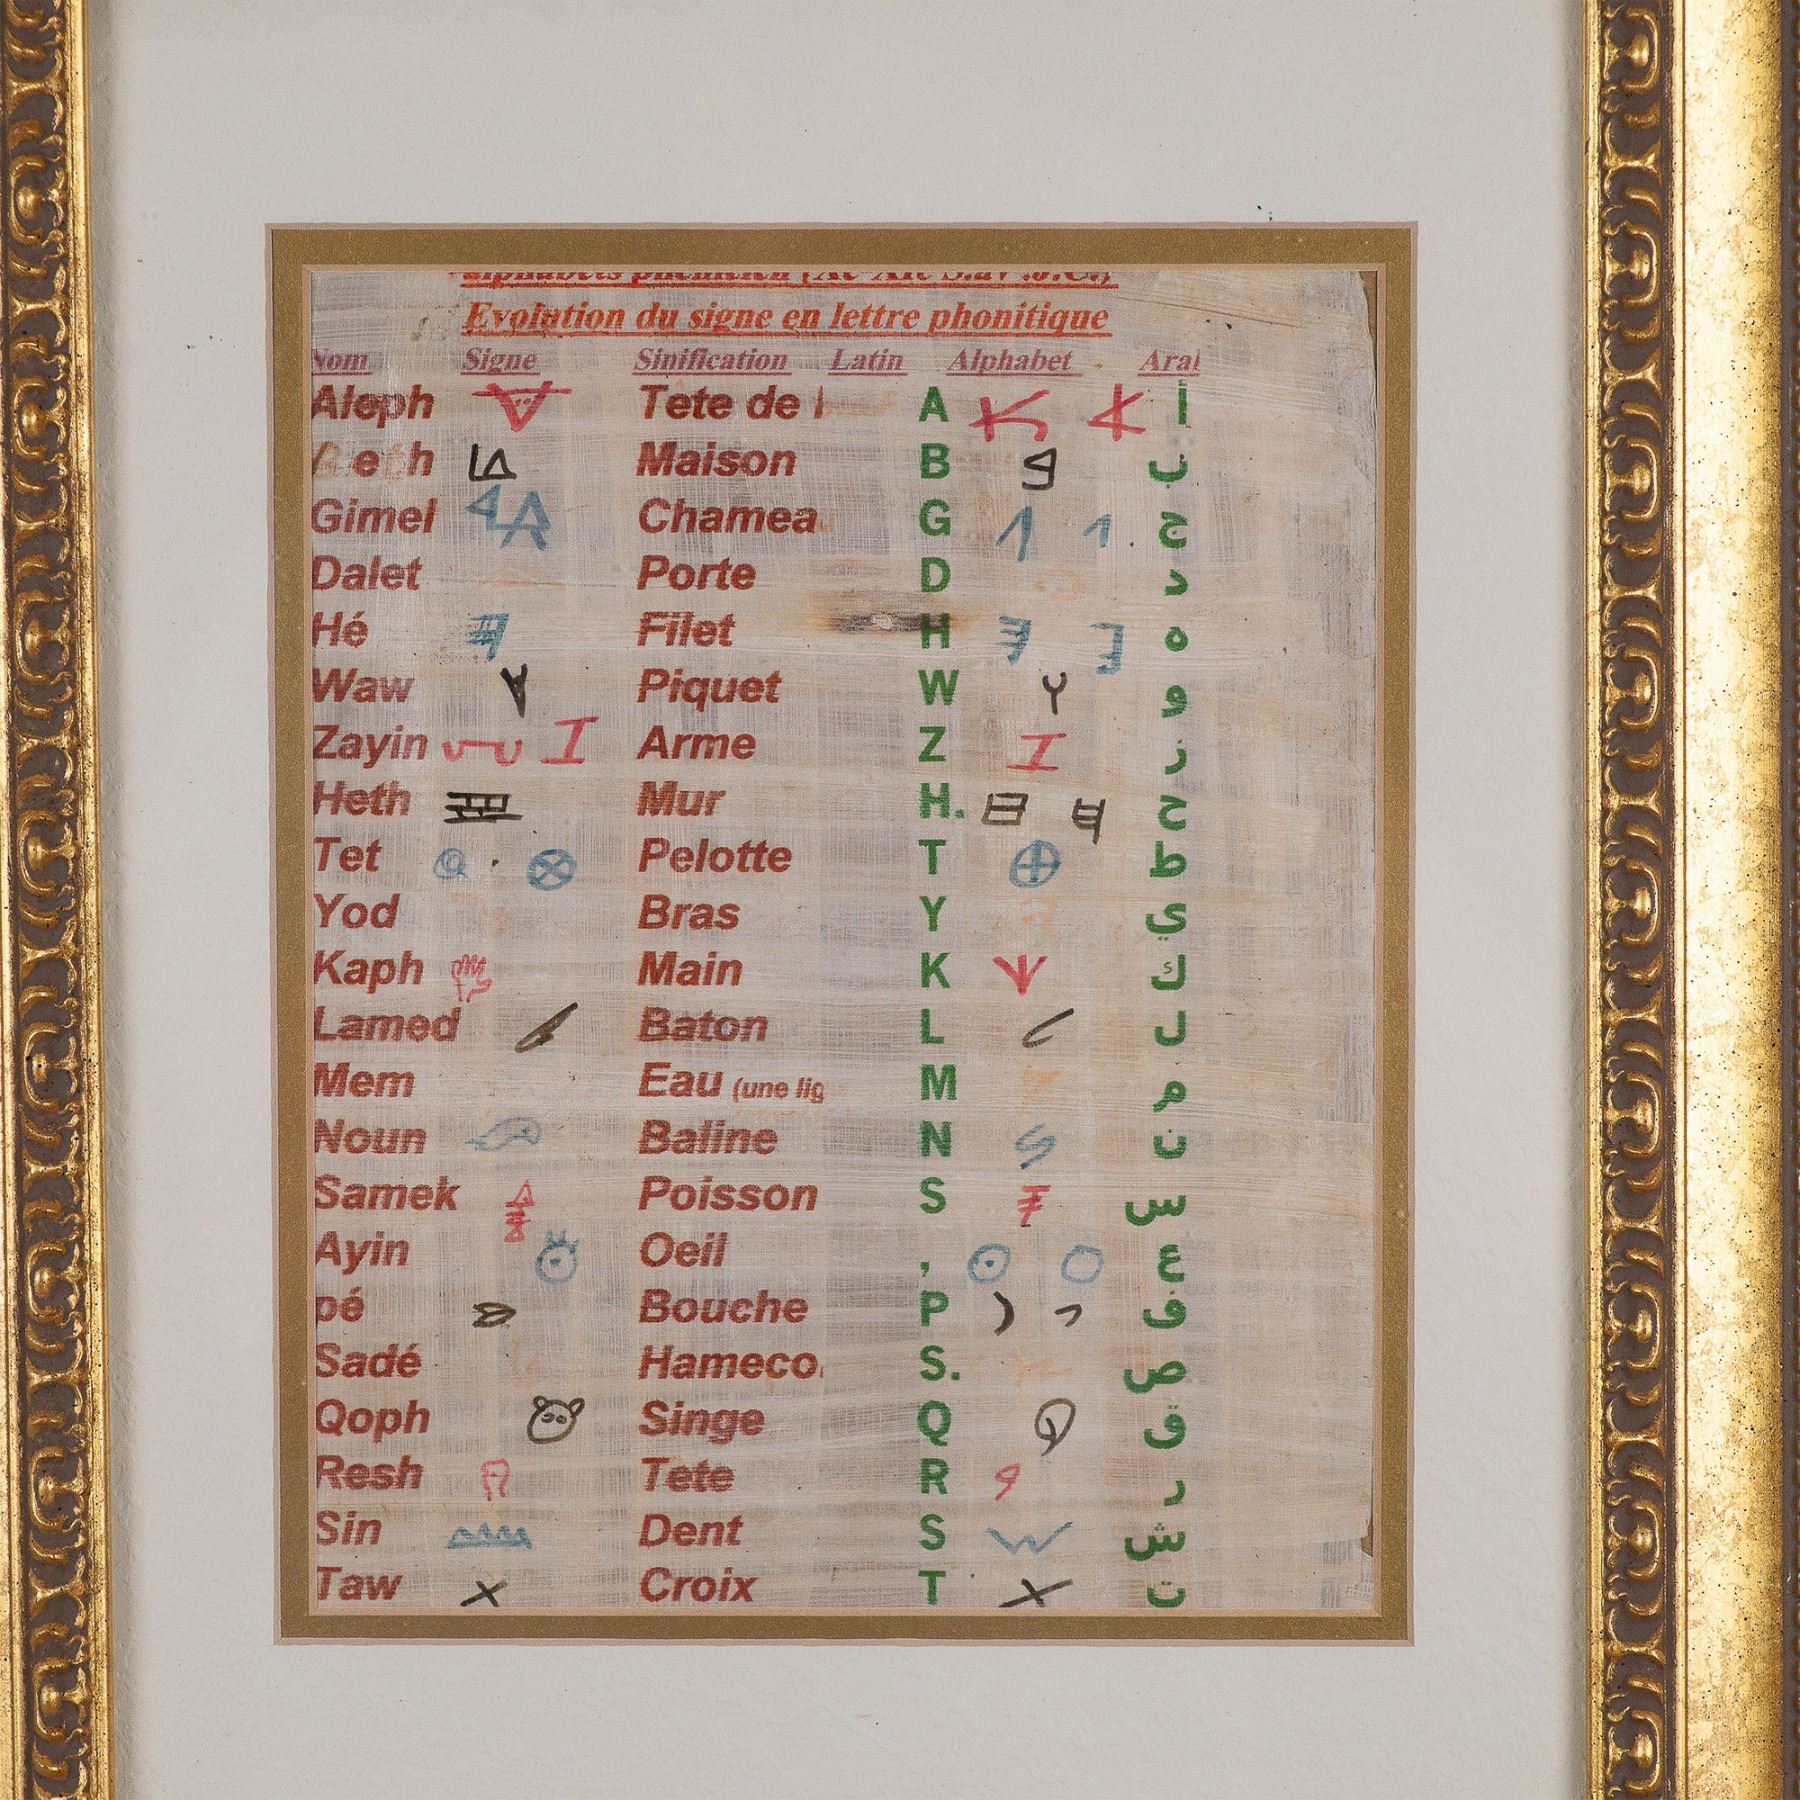 alphabets phénicien (Xe-XIe S.av .J.C.)
Evolution du signe en lettre phonitique
Nom Signe Sinification Latin Alphabet Aral
Aleph Tete de A أ
eth Maison B ب
Gimel Chamea G ج
Dalet Porte D د
Hé Filet H ه
Waw Piquet W و
Zayin Arme Z ز
Heth Mur H. ح
Tet Pelotte T ط
Yod Bras Y ي
Kaph Main K ك
Lamed Baton L ل
Mem Eau (une lig M م
Noun Baline N ن
Samek Poisson S س
Ayin Oeil , ع
pé Bouche P ف
Sadé Hameco S. ص
Qoph Singe Q ق
Resh Tete R ر
Sin Dent S ش
Taw Croix T ت